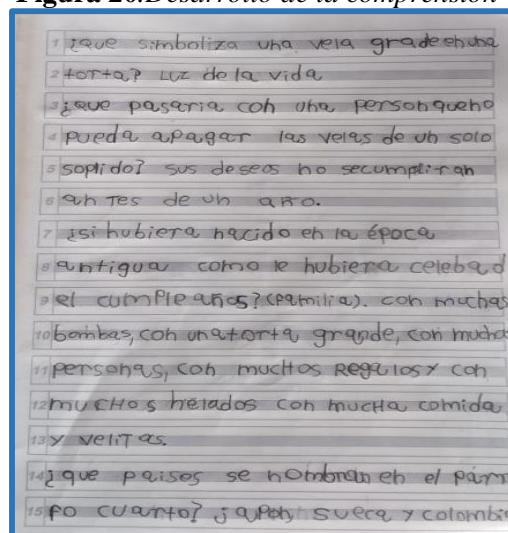 Figura 20.Desarrollo de la comprensión
1 ¿que simboliza una vela grade en una
2 torta? Luz de la vida
3 ¿que pasaria con una person que no
4 pueda apagar las velas de un solo
5 soplido? sus deseos no secumpliran
6 an Tes de un año.
7 ¿si hubiera nacido en la época
8 antigua como le hubiera celebad
9 el cumple años? (familia). con muchas
10 bombas, con una torta grande, con mucha
11 personas, con mucHos Regalos y con
12 mucHos helados con mucHa comida
13 y veliTas.
14 ¿que paises se nombran en el párr
15 fo cuarto? japon, sueca y colombi